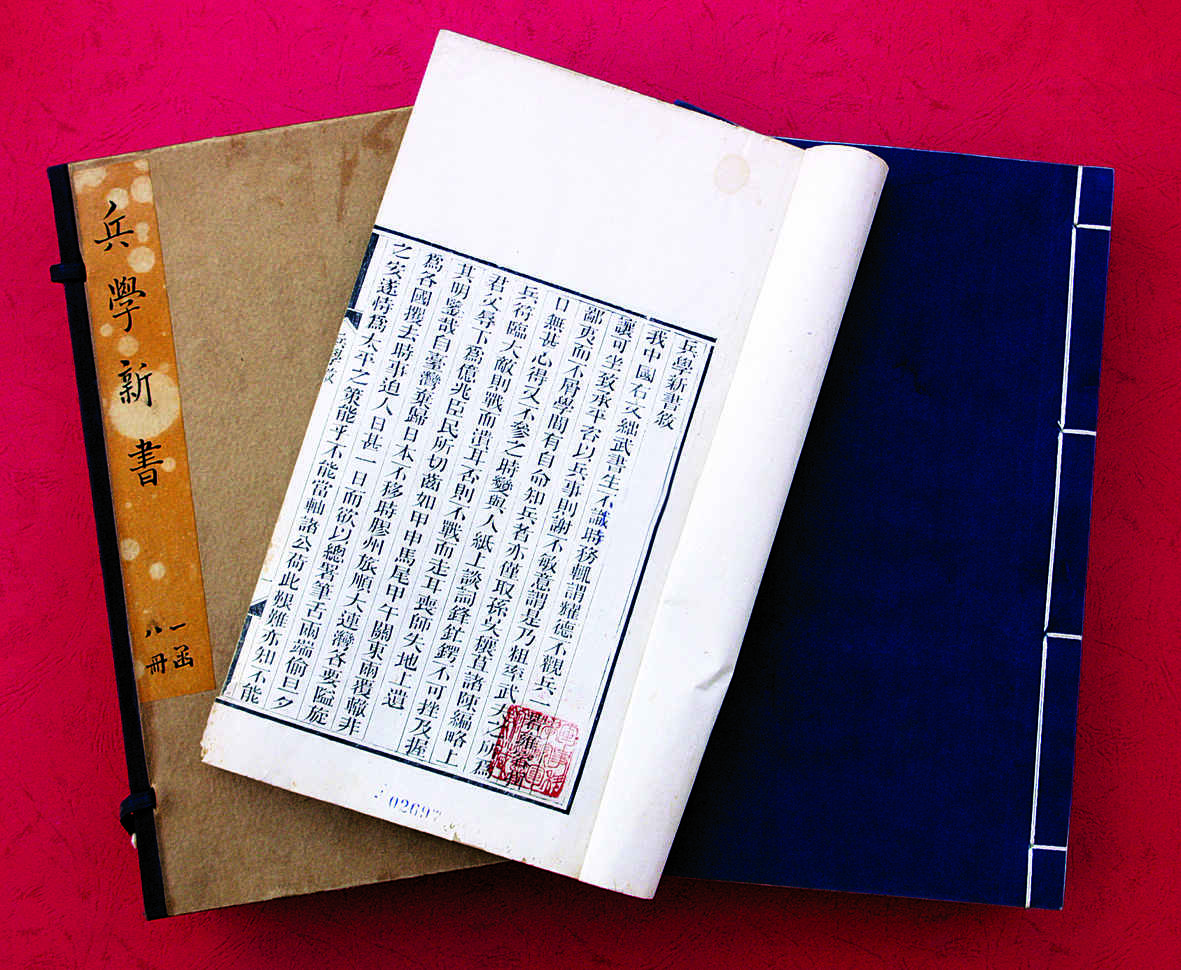 兵學新書
一函
八冊
兵學新書敘
我中國右文絀武書生不識時務輒謂耀德不觀兵一若雍容揖
讓可坐致承平咨以兵事則謝不敏意謂是乃粗率武夫之所為
鄙夷而不屑學間有自命知兵者亦僅取孫吳穰苴諸陳編略上
口無甚心得又不參之時變與人紙上談詞鋒鋩鍔不可挫及握
兵符臨大敵則戰而潰耳否則不戰而走耳喪師失地上遺
君父辱下為億兆臣民所切齒如甲申馬尾甲午關東兩覆轍非
其明鑒哉自臺灣棄歸日本不移時膠州旅順大連灣各要隘旋
為各國攫去時事迫人日甚一日而欲以總署筆舌兩端偷旦夕
之安遂恃為太平之策能乎不能當軸諸公荷此艱難亦知不能
兵學敘
一
02697